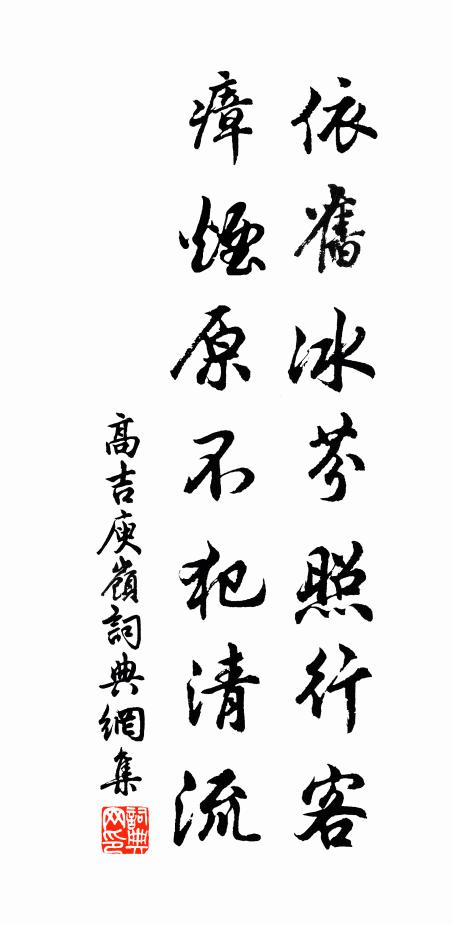 依舊冰芬照行客
瘴煙原不犯清流
高吉庾嶺詞典網集
詞典網印